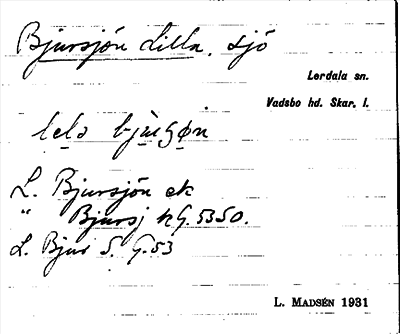 Bjursjön Lilla, sjö
Lerdala sn.
Vadsbo hd. Skar. l.
L. Bjursjön ek
" Bjursj hG.5350.
L. Bjur S. G.53
L. MADSÉN 1931